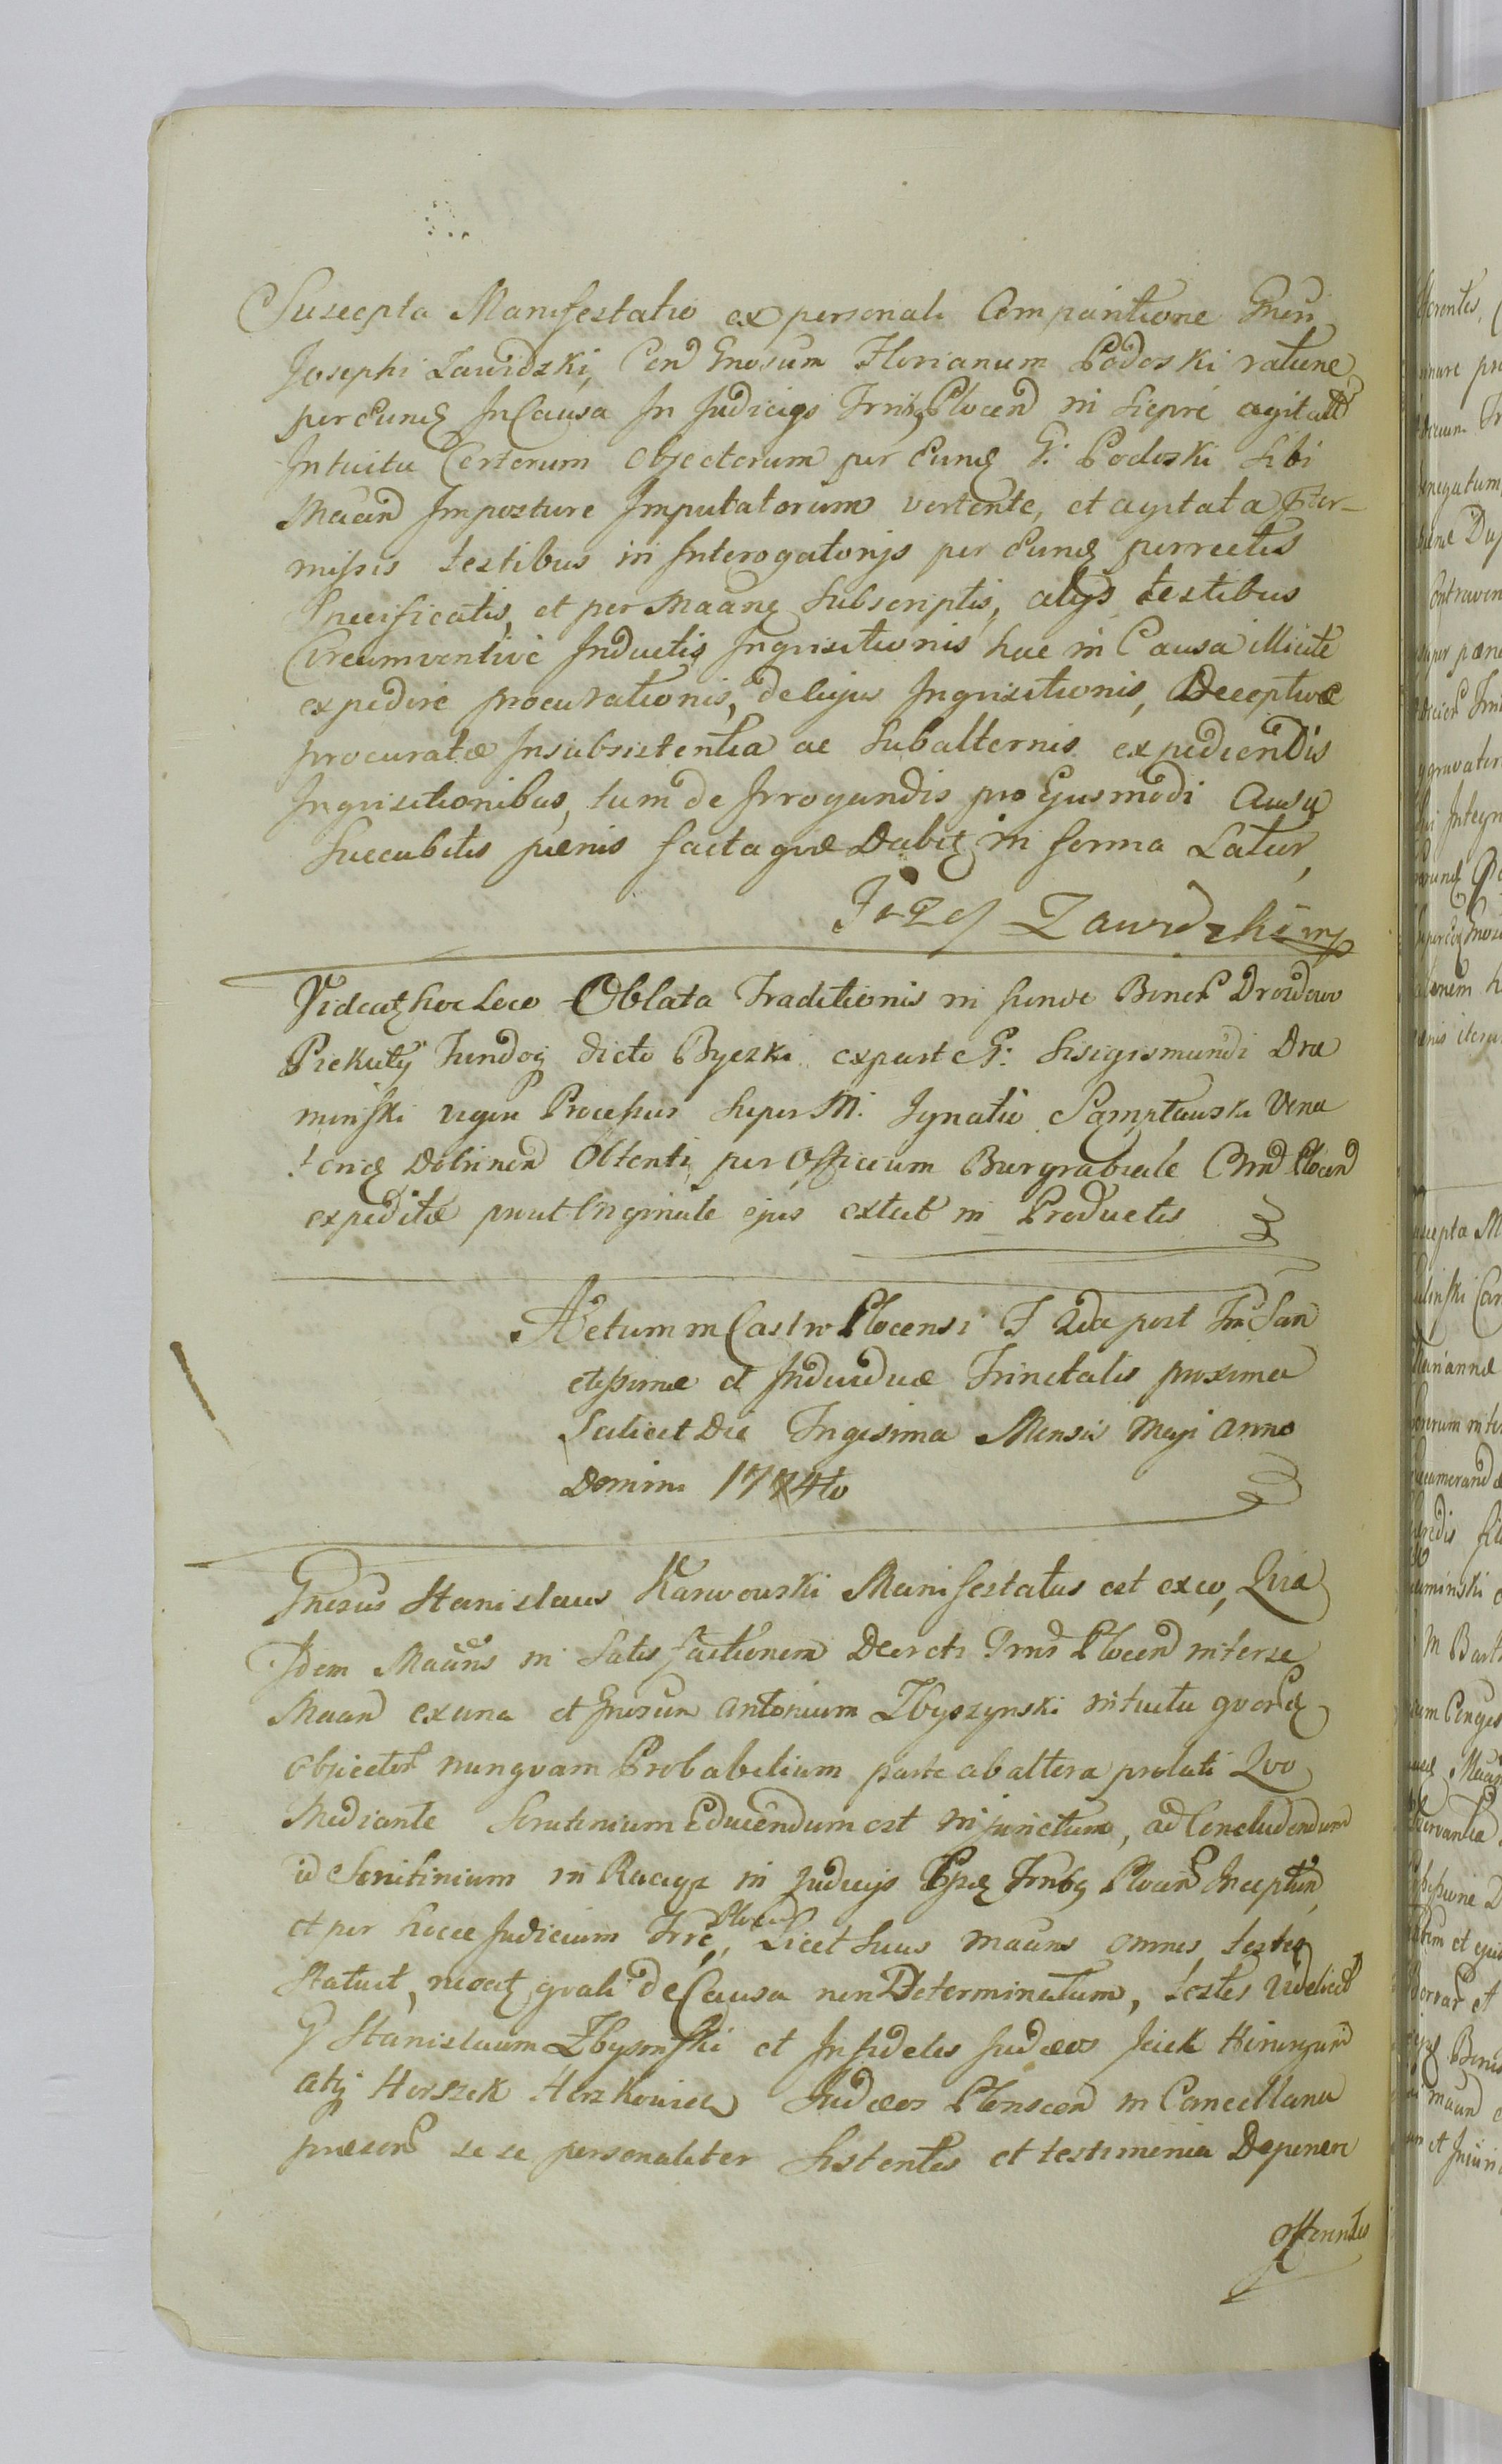 Suscepta Manifestatio ex personali Comparitione Gnеri
Josephi Zawidzki, Con Gnosum Florianum Podoski ratione
per Eundꝫ In Causa In Judicÿs Trribꝫ Plocen in Siepre agitatt
Intuitu Certorum Objectorum per Eundꝫ G: Podoski Sibi
Maan Imposture Imputatorum vertente, et agitata Inter-
missis testibus in Interogatorijs per Eundꝫ porrectis
Specificatis, et per Maanꝫ Subscriptis, alijs testibus
Circumventive Inductis Inquisitionis hac in Causa illicite
expedire procurationis, de lujus Inquisitionis, Deceptivæ
procuratæ Insubsistentia ac Subalternis expediendis
Inquisitionibus, tum de Irrogandis pro Ejusmodi Ausu
Succubitis pænis facta quæ Dabitꝫ in forma Latior,
Jozef Zawidzki mp
Videatꝫ hoc Loco Oblata Traditionis in Sumoe Bonor Drozdowo
Piekuty Fundoqꝫ dicto Byczki ex parte G: Sisigismundi Dra
minski vigore Processus Super M: Ignatio Sampławski Vena
toriꝫ Dobrinen Obtenti, per Officium Burgrabiale Cnd Plocen
expeditæ prout Originale ejus extat in Productis
Actum in Castro Plocensi F 2da post Fm San
ctissimæ et Individuæ Trinitatis proxima
Scilicet Die Trigesima Mensis Maji Anno
Domini 1774to
Gnosus Stanislaus Karwowski Manifestatus est ex eo, Quia
Idem Maans in Satisfactionem Decreti Trris Plocen inter se
Maan ex una et Gnosum Antonium Zbyszynski intuitu quorꝫ
Objector nunquam Probabilium parte ab altera prolati Quo
Mediante Scrutinium Educendum est injunctum, ad Concludendum
id Scrutinium in Raciąż in Judicijs Ipsꝫ Trribꝫ Plocen Inceptum,
et per hocce Judicium Trre, Plocen Licet Suus Maans omnes testes
Statuit, nescitꝫ quali de Causa non Determinatum, testes videlicet
G Stanislaum Zbyszynski et Infideles Judæos Jcick Hirszym
atqꝫ Herszek Herzkowicz Judæos Plonscen in Cancellaria
præsens se se personaliter Sistentes et testimonia Deponere
offerentes